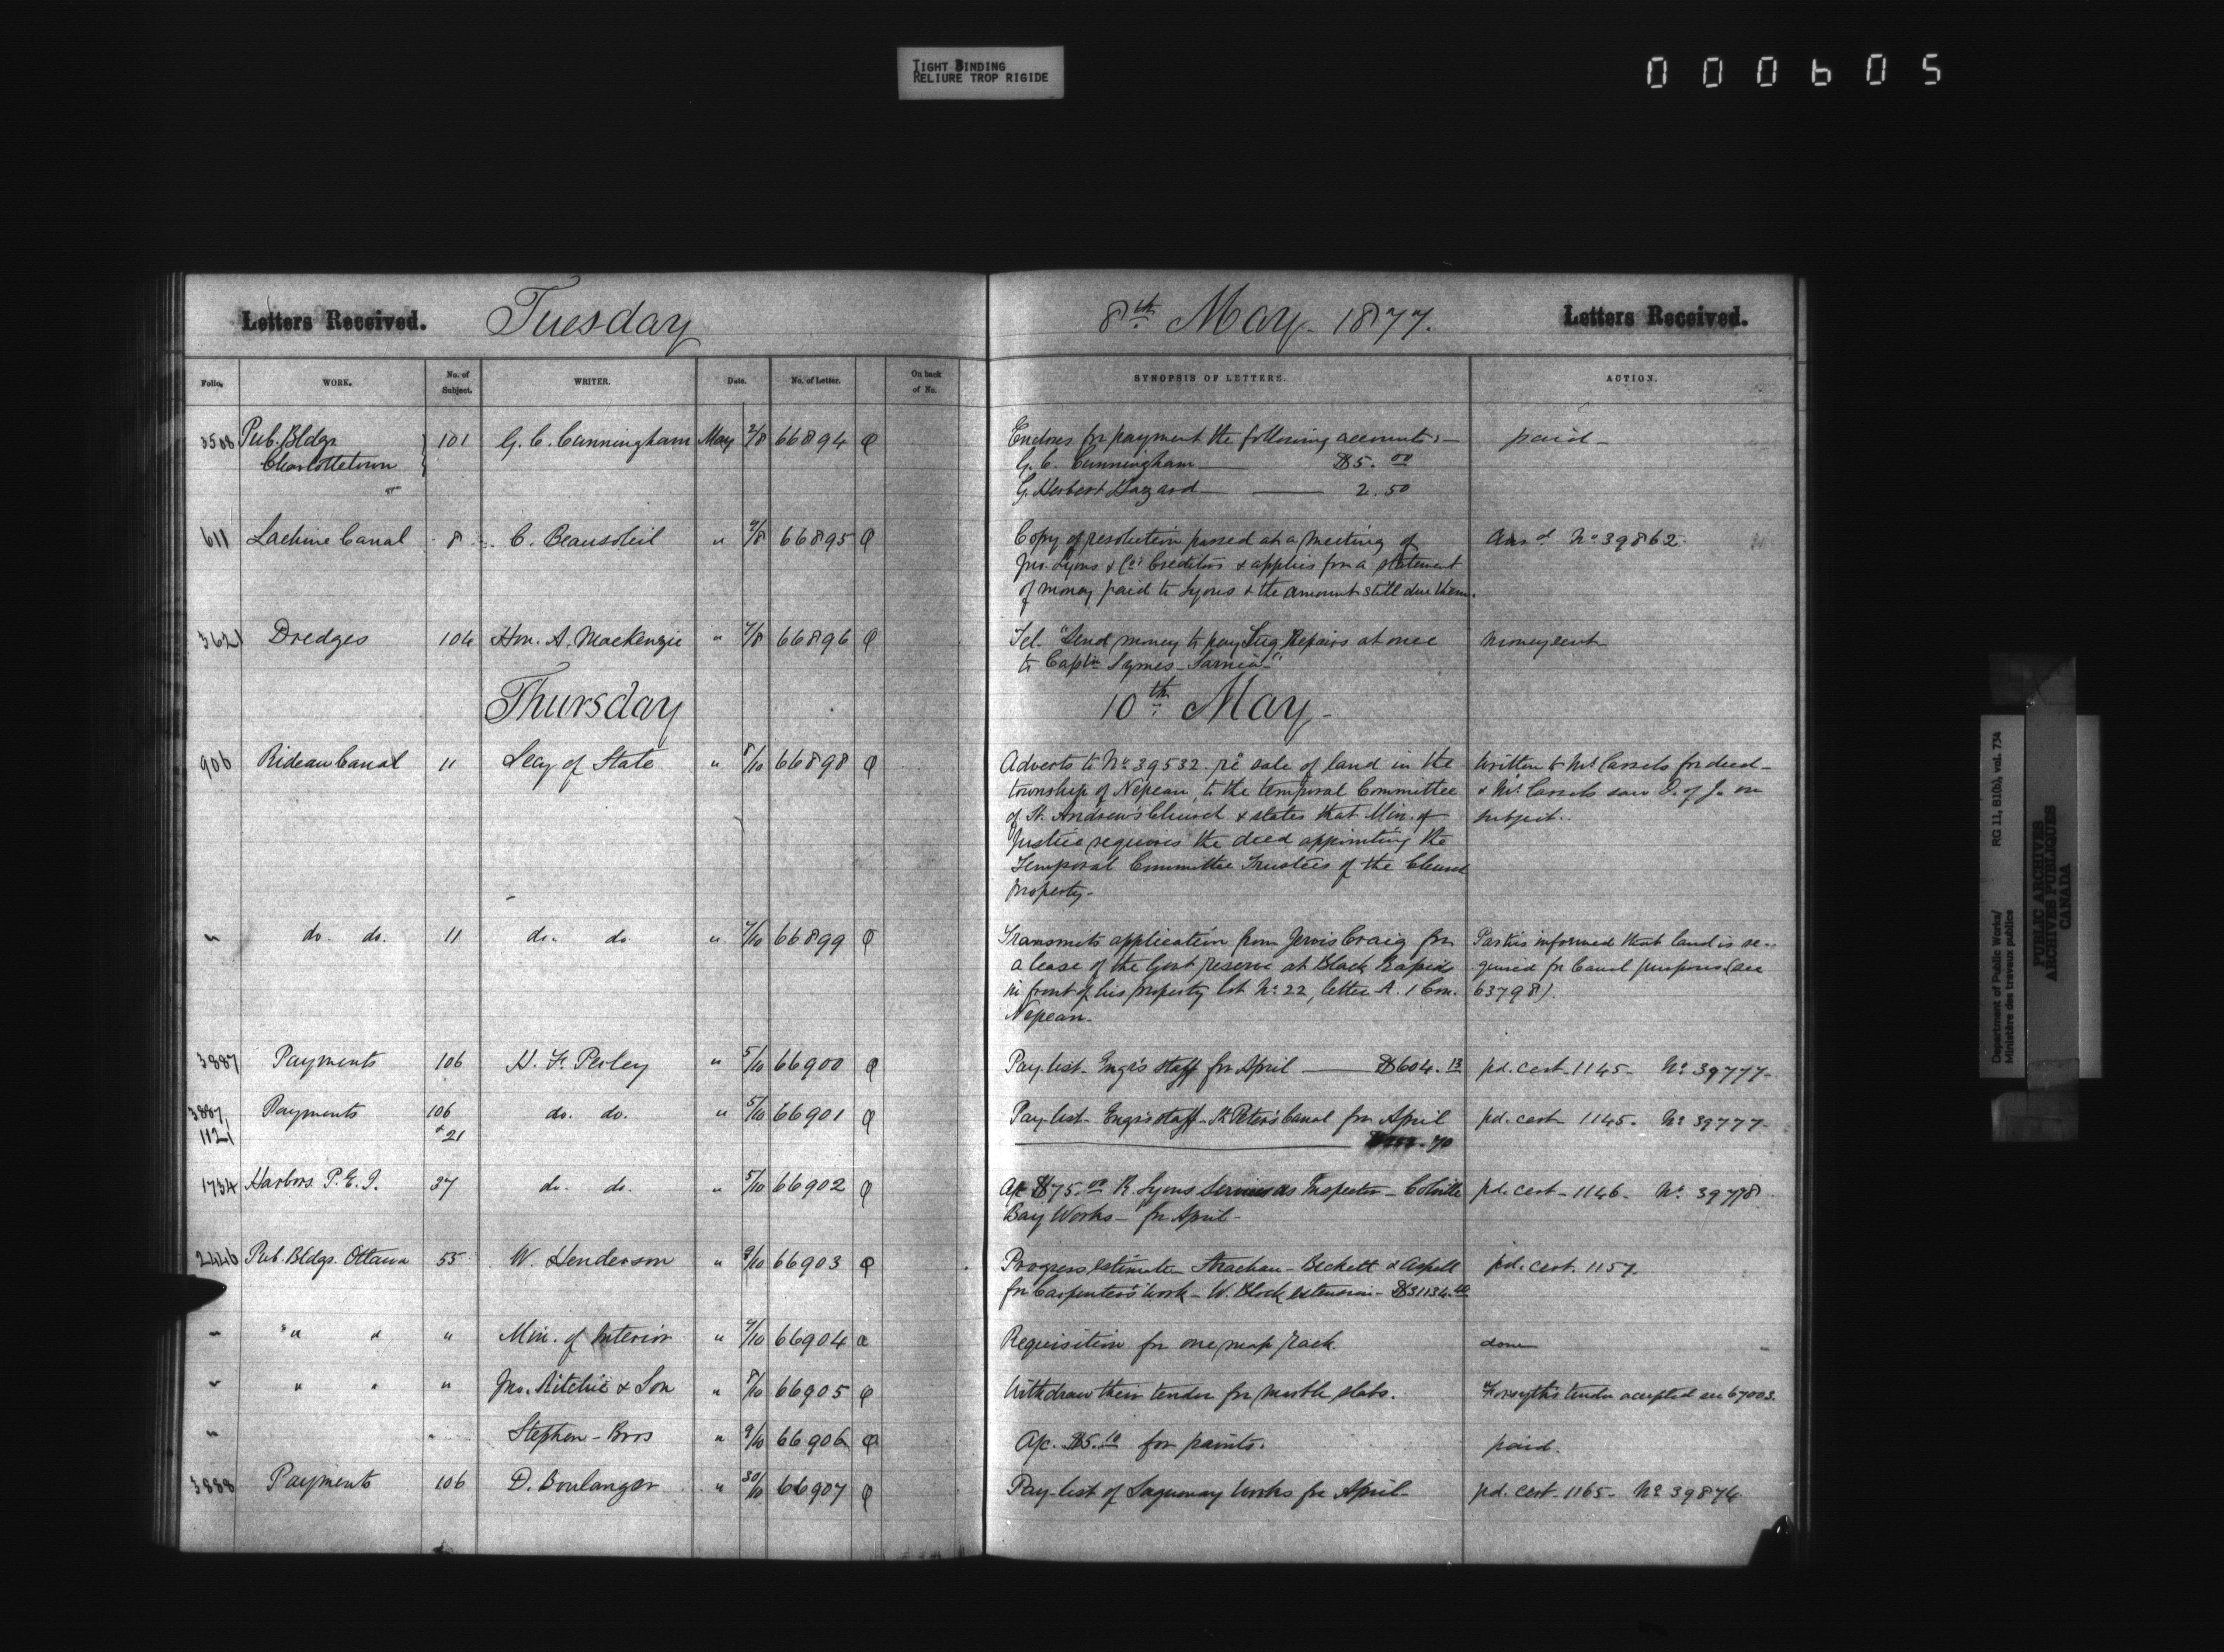 TIGHT BINDING
RELIURE TROP RIGIDE
000605
Letters Received. Tuesday 8th May. 1877. Letters Received.
Folio. WORK. No. of Subject. WRITER. Date. No. of Letter. On back of No. SYNOPSIS OF LETTERS. ACTION.
3508 Pub. Bldgs 101 G. C. Cunningham May 2/8 66894 Encloses for payment the following accounts:— paid—
Charlottetown G. C. Cunningham — $5.00
G. Herbert Hazard — 2.50
611 Lachine Canal 8 C. Beausoleil " 66895 Copy of resolution passed at a meeting of Ansd No 39862.
Jno. Lyons & Co's Creditors & applies for a statement
of money paid to Lyons & the amount still due them.
3621 Dredges 104 Hon. A. Mackenzie " 7/8 66896 Tel. "Send money to pay Tug Repairs at once money sent
to Captn Symes — Sarnia—"
Thursday 10th May—
906 Rideau Canal 11 Secy. of State " 8/10 66898 Adverts to No 39532 re sale of land in the Written to Mr Cassels for deed—
township of Nepean, to the temporal Committee & Mr Cassels saw D. of J. on
of St. Andrew's Church & states that Min. of subject.
Justice requires the deed appointing the
Temporal Committee Trustees of the Church
property—
" do. do. 11 do. do. " 7/10 66899 Transmits application from Jervis Craig for Parties informed that land is re-
a lease of the Govt reserve at Black Rapids quired for Canal purposes (see
in front of his property lot No. 22, letter A. 1 Con. 63798).
Nepean—
3887 Payments 106 H. F. Perley " 5/10 66900 Pay-list. Engr's staff for April — $604.13 pd. cert. 1145— No 39777—
3887, Payments 106 do. do. " 5/10 66901 Pay-list— Engr's staff— St Peter's Canal for April pd. cert 1145. No 39777—
1121 & 21 .70
1734 Harbors P.E.I. 37 do. do. " 5/10 66902 A/c $75.00 R Lyons Services as Inspector— Colville pd. cert— 1146— No 39778
Bay Works— for April—
2446 Pub. Bldgs. Ottawa 55 W. Henderson " 9/10 66903 Progress estimate Strachan— Beckett & Aspell pd. cert. 1157.
for Carpenter's work— W. Block extension— $31134.40
" " " " Min. of Interior " 7/10 66904 Requisition for one map rack. done
" " " " Jno. Ritchie & Son " 8/10 66905 Withdraw their tender for marble slabs. Forsyth's tender accepted see 67003.
" " Stephen— Bros " 9/10 66906 A/c. $5.10 for paints. paid.
3888 Payments 106 D. Boulanger " 30/10 66907 Pay-list of Saguenay Works for April— pd. cert— 1165— No 39874
Department of Public Works/ RG 11, B1(b), vol. 734
Ministère des travaux publics
PUBLIC ARCHIVES
ARCHIVES PUBLIQUES
CANADA